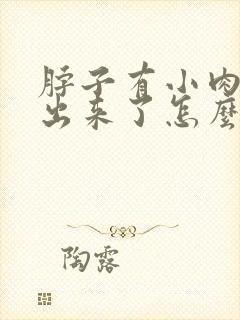 脖子有小肉
出来了怎麼
陶露